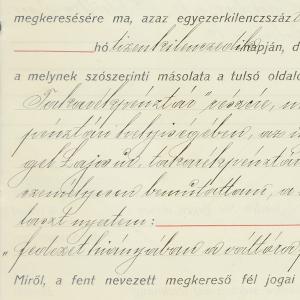 megkeresésére ma, azaz egyezerkilenczszáz
hó tizenkilenczedik napján, d
a melynek szószerinti másolata a tulsó oldalo
Takarékpénztár" részére, m
pénztári helyiségében, az i
gel Lajos úr, takarékpénztár
személyesen bemutattam, a
laszt nyertem:
„fedezet hiányában a váltóra
Miről, a fent nevezett megkereső fél jogai